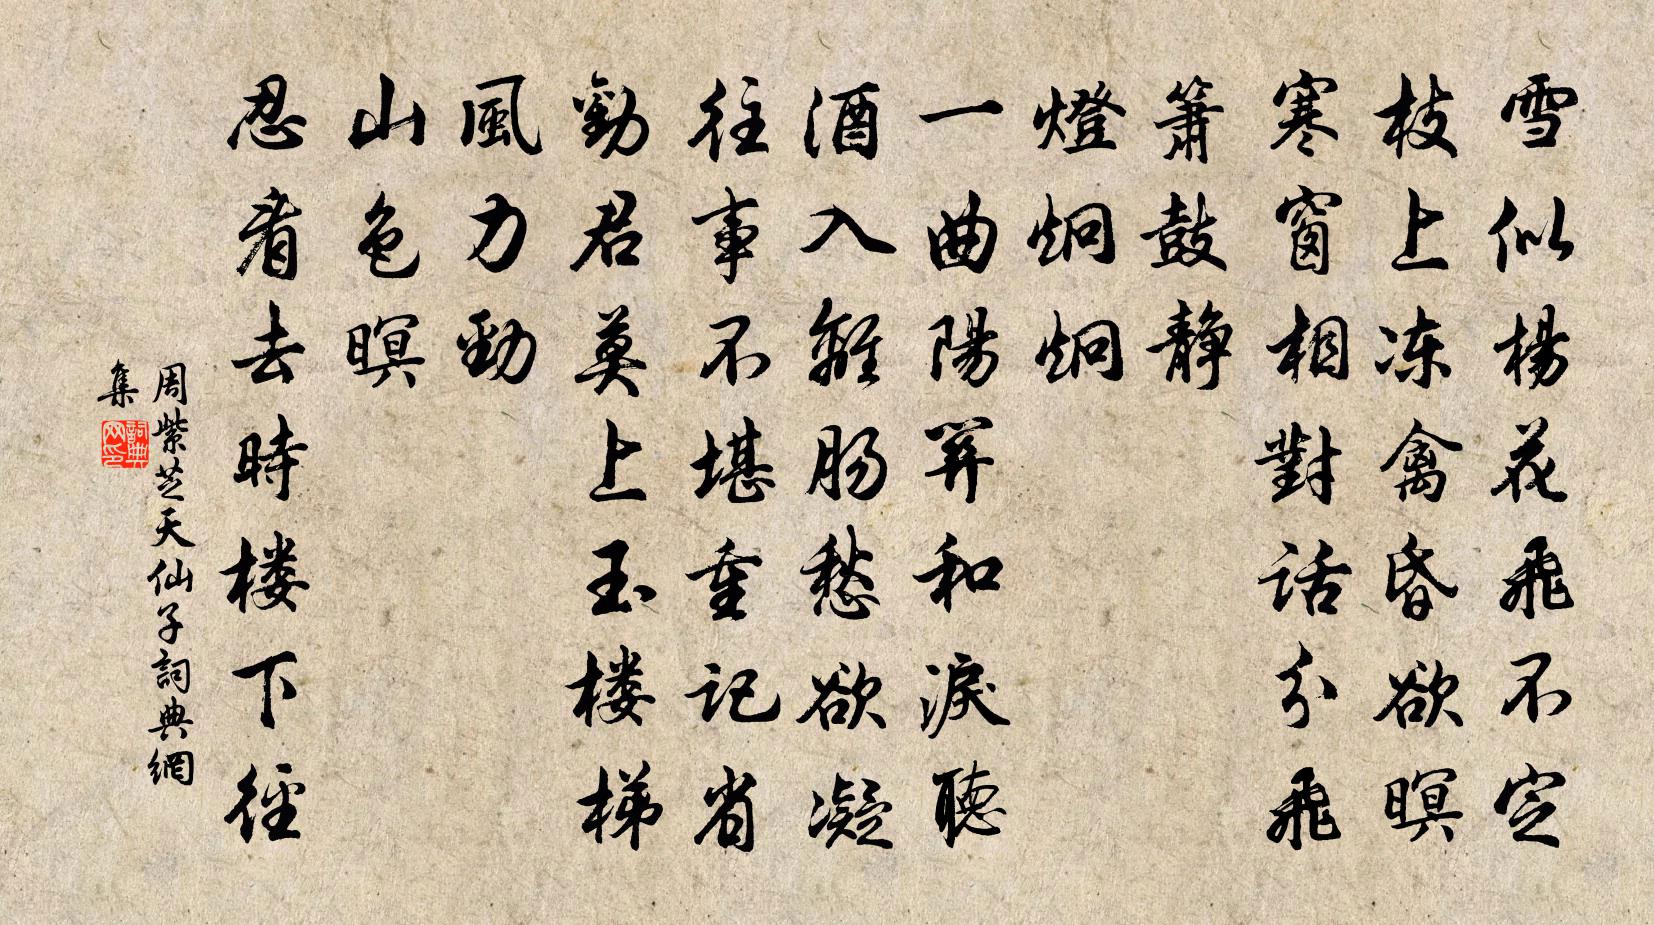 雪似楊花飛不定
枝上冻禽昏欲暝
寒窗相對話分飛
簫鼓静
燈炯炯
一曲陽關和淚聽
酒入離肠愁欲凝
往事不堪重記省
勸君莫上玉楼梯
風力勁
山色暝
忍看去時楼下徑
周紫芝天仙子詞典網
集
詞典
网印